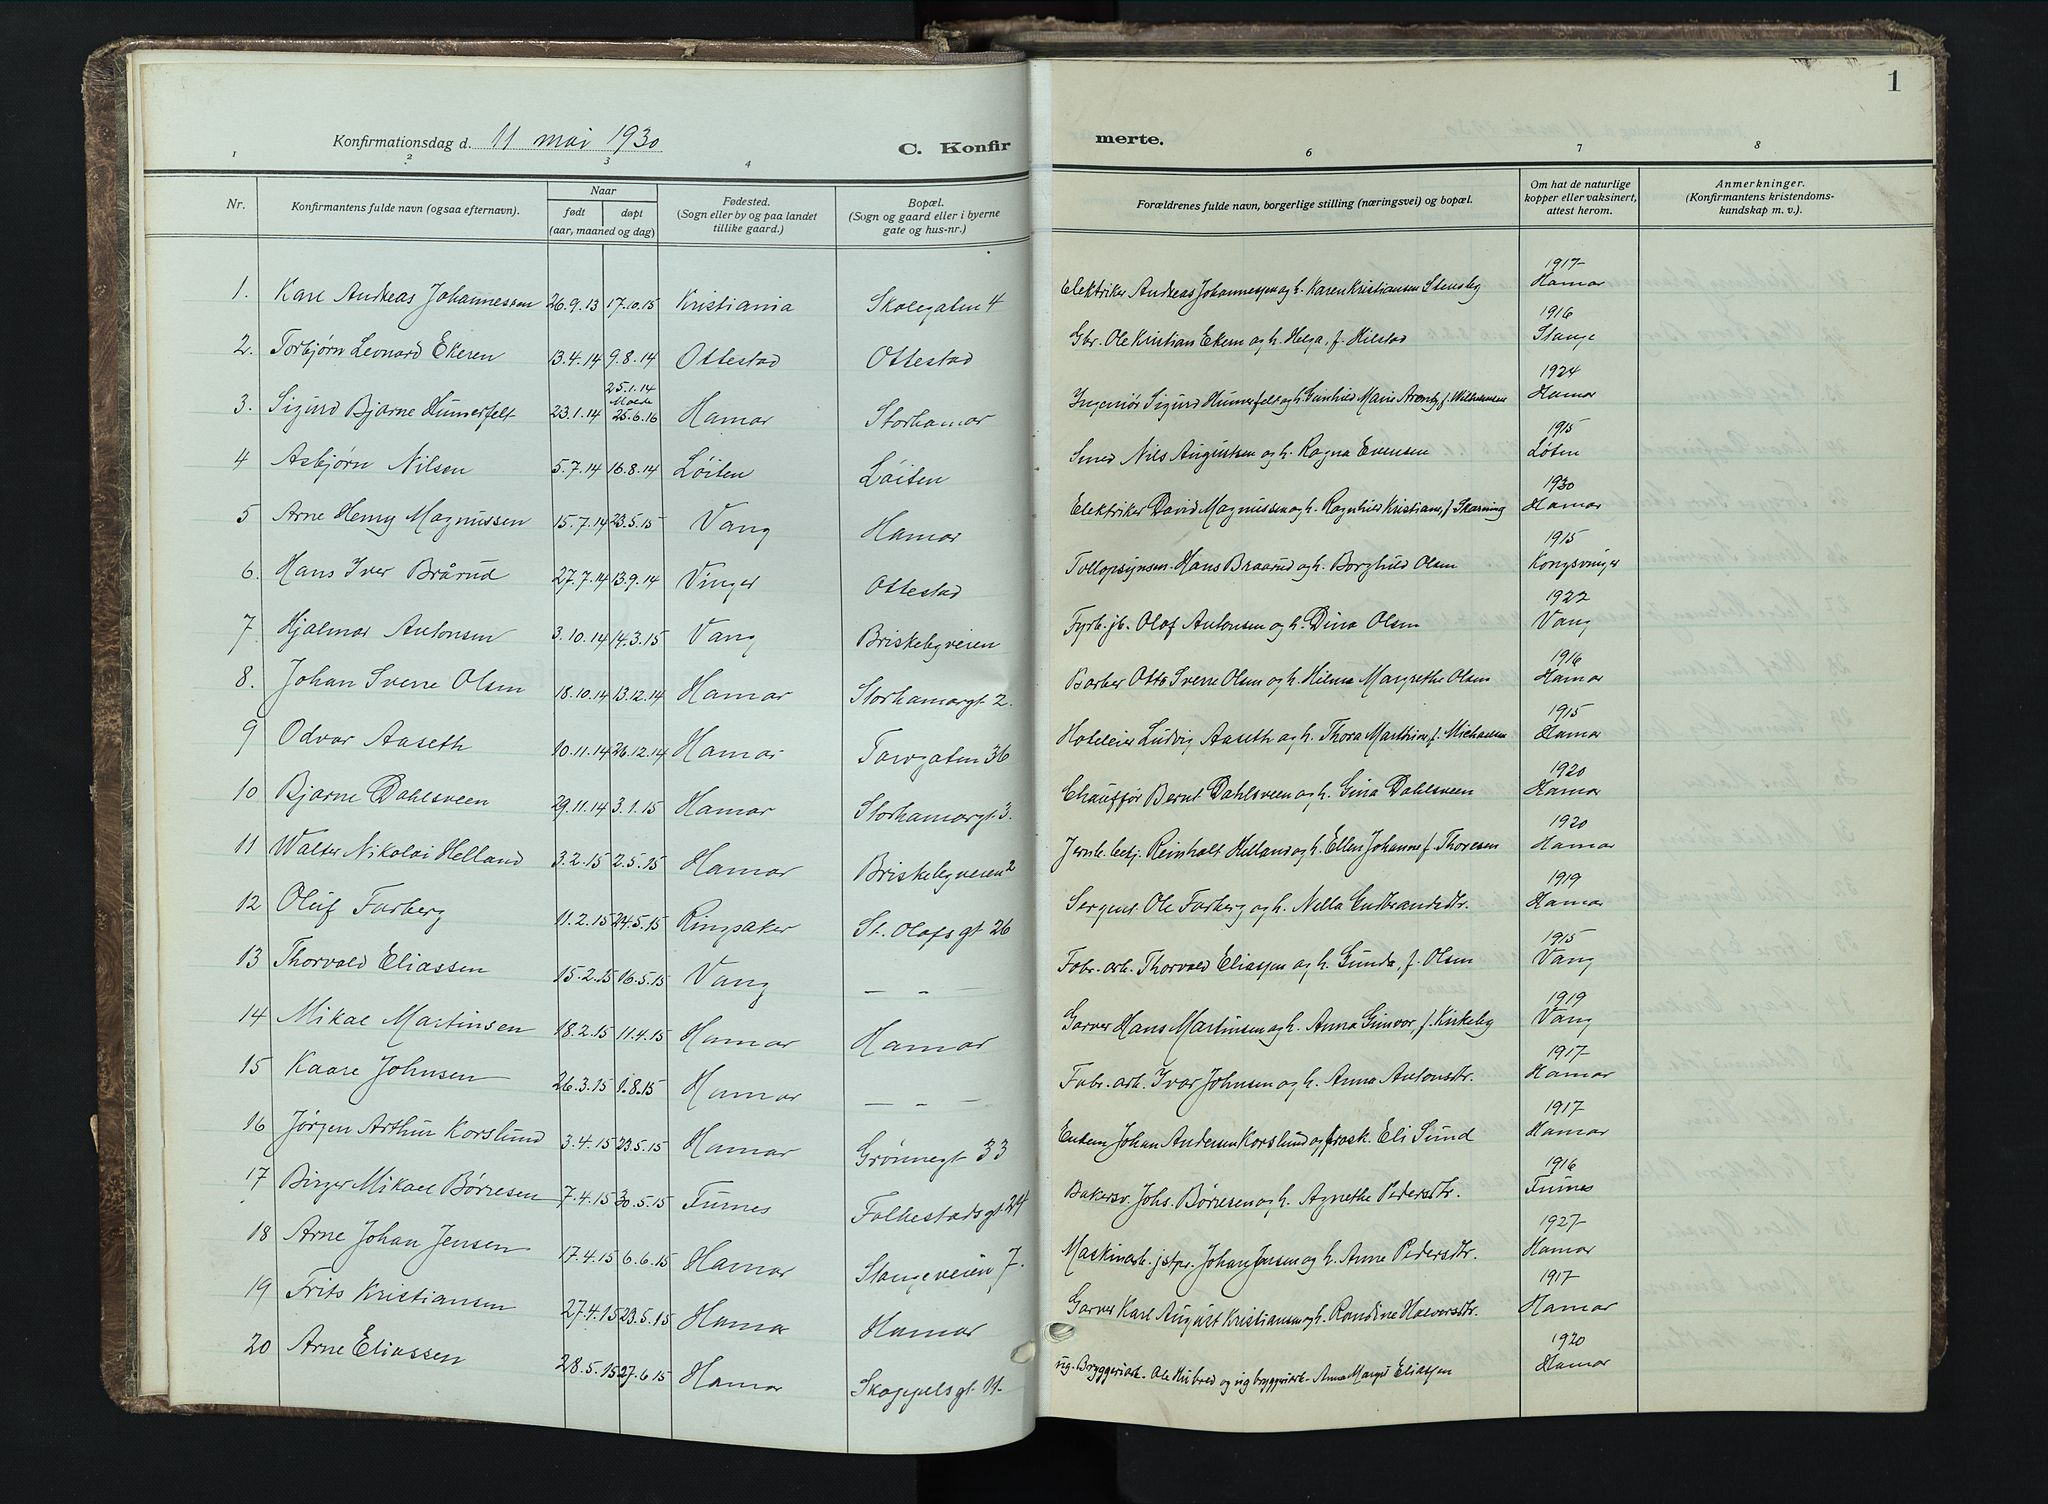 1
Konfirmationsdag d. 11 mai 1930
C. Konfir merte.
1 2 3 4 5 6 7 8
Nr. Konfirmantens fulde navn (ogsaa efternavn). Naar født døpt (aar, maaned og dag) Fødested. (Sogn eller by og paa landet tillike gaard.) Bopæl. (Sogn og gaard eller i byerne gate og hus-nr.) Forældrenes fulde navn, borgerlige stilling (næringsvei) og bopæl. Om hat de naturlige kopper eller vaksinert, attest herom. Anmerkninger. (Konfirmantens kristendoms-kundskap m. v.).
1. Kare Andreas Johannessen 26.9.13 17.10.15 Kristiania Skolegaten 4 Elektriker Andreas Johannessen og h. Karen Kristiansen Stensby 1917 Hamar
2. Torbjørn Leonard Ekeren 13.4.14 9.8.14 Ottestad Ottestad Gbr. Ole Kristian Ekern og h. Helga, f. Hilstad 1916 Stange
3. Sigurd Bjarne Humerfelt 23.1.14 25.1.14 Molde 25.6.16 Hamar Storhamar Ingeniør Sigurd Humerfelt og h. Gunhild Marie Arentz f. Wilhelmsen 1924 Hamar
4 Asbjørn Nilsen 5.7.14 16.8.14 Løiten Løiten Smed Nils Augustsen og h. Ragna Evensen 1915 Løten
5 Arne Henry Magnussen 15.7.14 23.5.15 Vang Hamar Elektriker David Magnussen og h. Ragnhild Kristians, f. Skarning 1930 Hamar
6. Hans Iver Brårud 27.7.14 13.9.14 Vinger Ottestad Tollopsynsm. Hans Braarud og h. Borghild Olsen 1915 Kongsvinger
7 Hjalmar Antonsen 3.10.14 14.3.15 Vang Briskebyveien Fyrb. jb. Olaf Antonsen og h. Dina Olsen 1922 Vang
8. Johan Sverre Olsen 18.10.14 13.12.14 Hamar Storhamargt 2. Barber Otto Sverre Olsen og h. Hilma Margrethe Olsen 1916 Hamar
9 Odvar Aaseth 10.11.14 26.12.14 Hamar Torvgaten 36 Hoteleier Ludvig Aaseth og h. Thora Marthine, f. Michaelsen 1915 Hamar
10 Bjarne Dahlsveen 29.11.14 3.1.15 Hamar Storhamargt 3. Chauffør Bernt Dahlsveen og h. Gina Dahlsveen 1920 Hamar
11 Walter Nikolai Helland 3.2.15 2.5.15 Hamar Briskebyveien 2 Jernb. betj. Reinholt Helland og h. Ellen Johanne f. Thoresen 1920 Hamar
12 Oluf Farberg 11.2.15 24.5.15 Ringsaker St. Olafsgt 26 Sergent Ole Farberg og h. Nella Gudbrandsdtr. 1919 Hamar
13 Thorvald Eliassen 15.2.15 16.5.15 Vang — - — Fabr. arb. Thorvald Eliassen og h. Gunda, f. Olsen 1915 Vang
14 Mikal Martinsen 18.2.15 11.4.15 Hamar Hamar Garver Hans Martinsen og h. Anna Gunvor, f. Kirkeby 1919 Vang
15 Kaare Johnsen 26.3.15 1.8.15 Hamar — - — Fabr. arb. Ivar Johnsen og h. Anna Antonsdtr. 1917 Hamar
16 Jørgen Arthur Korslund 3.4.15 23.5.15 Hamar Grønnegt 33 Enkem. Johan Andersen Korslund og frask. Eli Sund 1917 Hamar
17 Birger Mikael Børresen 7.4.15 30.5.15 Furnes Folkestadsgt 24 Bakersv. Johs. Børresen og h. Agnethe Pedersdtr. 1916 Furnes
18 Arne Johan Jensen 17.4.15 6.6.15 Hamar Stangeveien 7. Maskinarb. jstpr. Johan Jensen og h. Anne Pedersdtr. 1927 Hamar
19 Frits Kristiansen 27.4.15 23.5.15 Hamar Hamar Garver Karl August Kristiansen og h. Randine Halvorsdtr. 1917 Hamar
20 Arne Eliassen 28.5.15 27.6.15 Hamar Skappelsgt 11. ug. Bryggeriarb. Ole Hubred og ug bryggeriarb. Anna Margit Eliassen 1920 Hamar